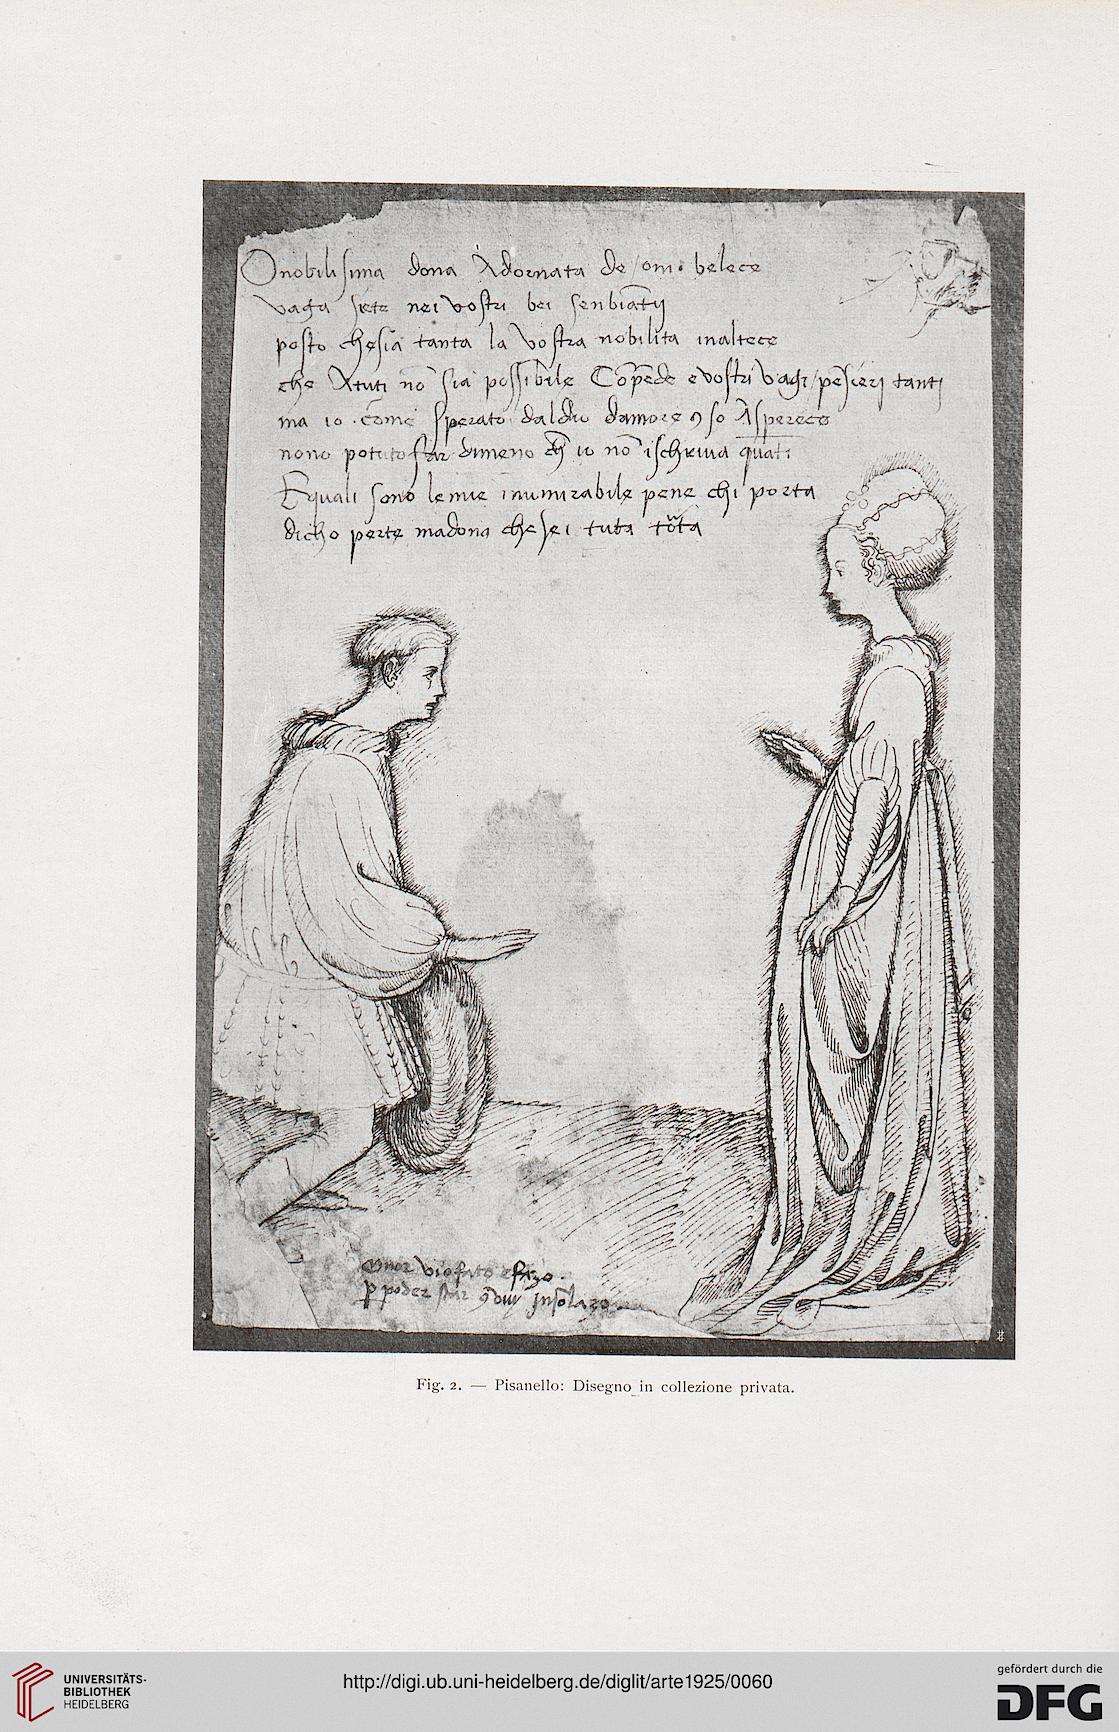 O nobilisima dona Adornata de omi belece
vaga siete nei vostri bei senbiatij
posto chesia tanta la vostra nobilita inaltece
che Atuti nō sia possibile Cōpēde e vostri vagi / pēsierj tantj
ma io come sperato dal dio damore
nono potuto star dimeno chē io nō ischriva quati
E quali sono le mie inumirabile pene chi porta
dicho perte madona che sei tuta tota
amor vio fato
p poder star
Fig. 2. — Pisanello: Disegno in collezione privata.
UNIVERSITÄTS-
BIBLIOTHEK
HEIDELBERG
http://digi.ub.uni-heidelberg.de/diglit/arte1925/0060
gefördert durch die
DFG